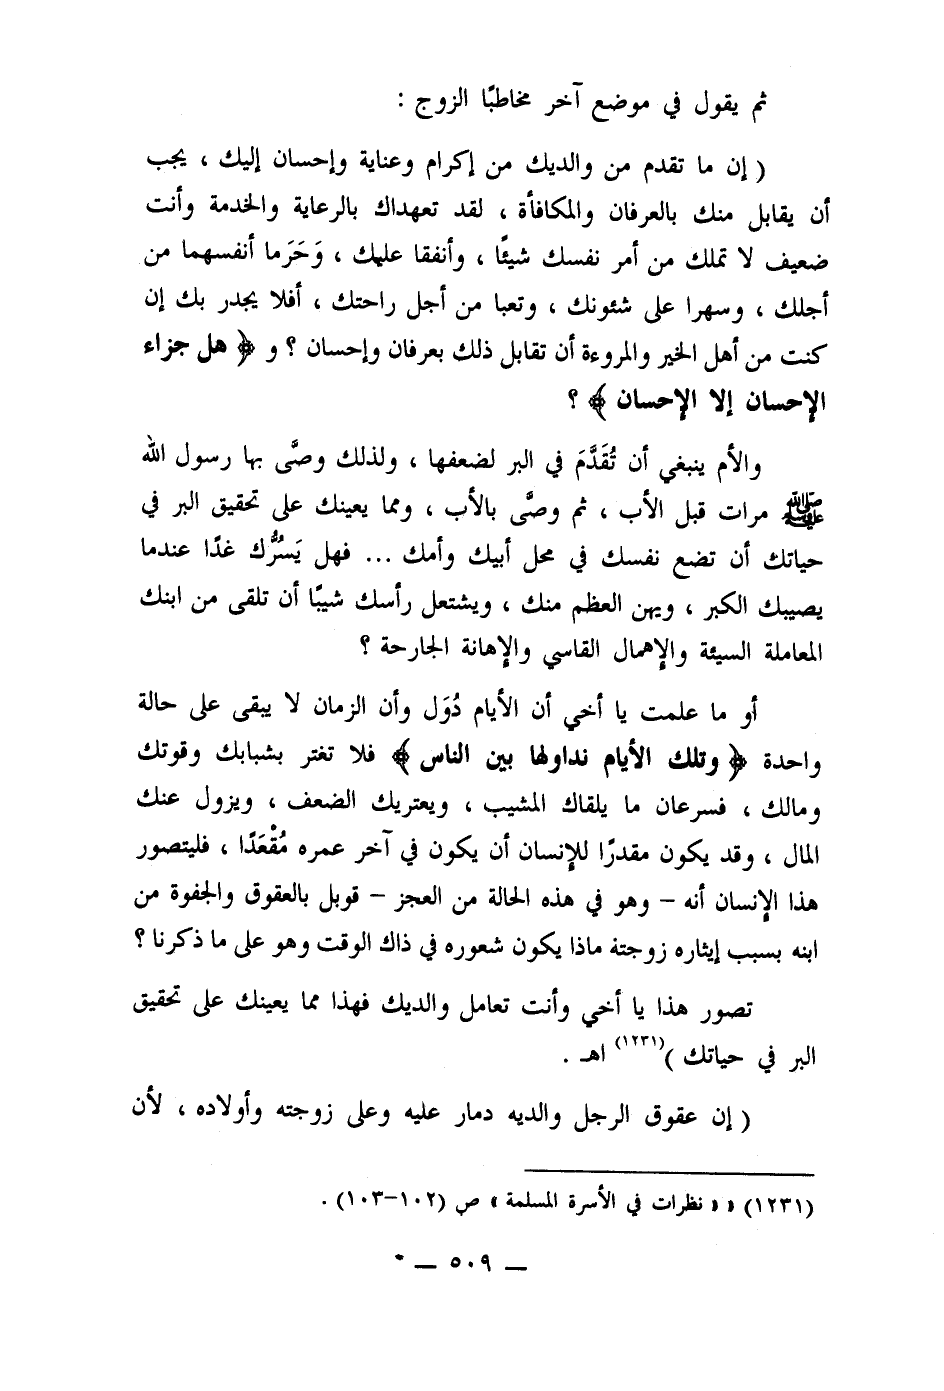 ثم يقول في موضع آخر مخاطبًا الزوج :
( إن ما تقدم من والديك من إكرام وعناية وإحسان إليك ، يجب
أن يقابل منك بالعرفان والمكافأة ، لقد تعهداك بالرعاية والخدمة وأنت
ضعيف لا تملك من أمر نفسك شيئًا ، وأنفقا عليك ، وَحَرَما أنفسهما من
أجلك ، وسهرا على شئونك ، وتعبا من أجل راحتك ، أفلا يجدر بك إن
كنت من أهل الخير والمروءة أن تقابل ذلك بعرفان وإحسان ؟ و ﴿ هل جزاء
الإحسان إلا الإحسان ﴾ ؟
والأم ينبغي أن تُقَدَّمَ في البر لضعفها ، ولذلك وصَّى بها رسول الله
ﷺ مرات قبل الأب ، ثم وصَّى بالأب ، ومما يعينك على تحقيق البر في
حياتك أن تضع نفسك في محل أبيك وأمك ... فهل يَسُرُّك غدًا عندما
يصيبك الكبر ، ويهن العظم منك ، ويشتعل رأسك شيبًا أن تلقى من ابنك
المعاملة السيئة والإهمال القاسي والإهانة الجارحة ؟
أو ما علمت يا أخي أن الأيام دُوَل وأن الزمان لا يبقى على حالة
واحدة ﴿ وتلك الأيام نداولها بين الناس ﴾ فلا تغتر بشبابك وقوتك
ومالك ، فسرعان ما يلقاك المشيب ، ويعتريك الضعف ، ويزول عنك
المال ، وقد يكون مقدرًا للإنسان أن يكون في آخر عمره مُقْعَدًا ، فليتصور
هذا الإنسان أنه – وهو في هذه الحالة من العجز – قوبل بالعقوق والجفوة من
ابنه بسبب إيثاره زوجتة ماذا يكون شعوره في ذاك الوقت وهو على ما ذكرنا ؟
تصور هذا يا أخي وأنت تعامل والديك فهذا مما يعينك على تحقيق
البر في حياتك )(١٢٣١) اهـ .
( إن عقوق الرجل والديه دمار عليه وعلى زوجته وأولاده ، لأن
(١٢٣١) « « نظرات في الأسرة المسلمة » ص (١٠٢–١٠٣) .
— ٥٠٩ —